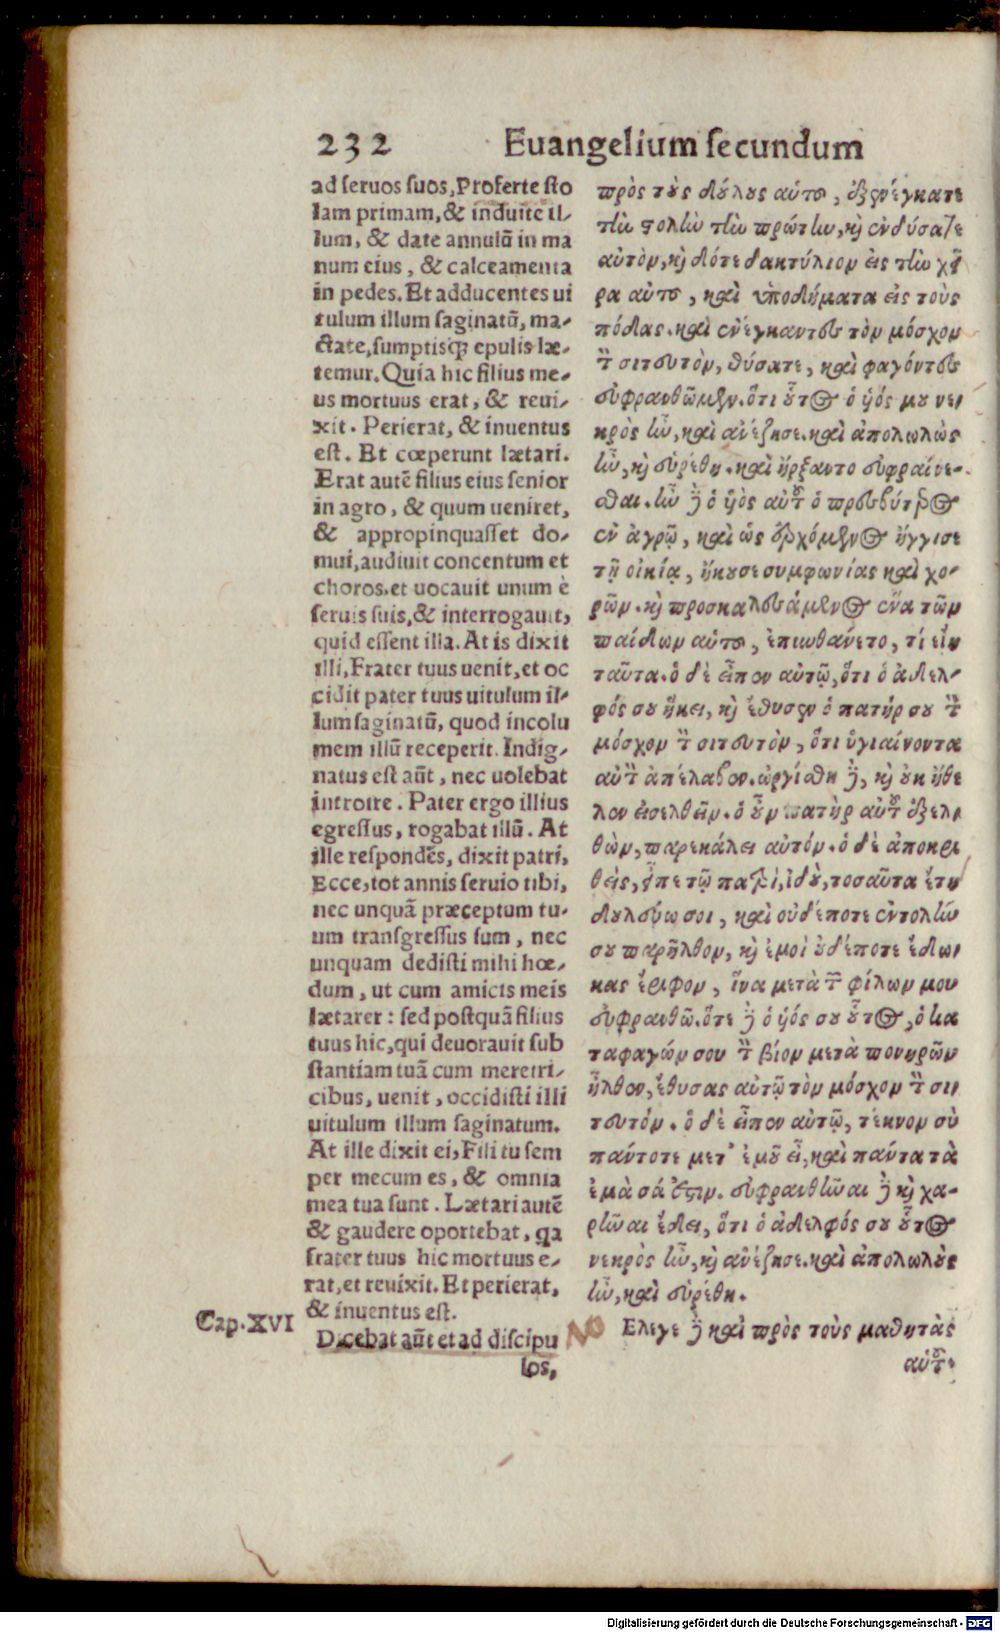 232 Euangelium secundum
ad seruos suos, Proferte sto
lam primam, & induite il-
lum, & date annulū in ma
num eius, & calceamenta
in pedes. Et adducentes ui
tulum illum saginatū, ma-
ctate, sumptisq; epulis læ-
temur. Quia hic filius me-
us mortuus erat, & reui-
xit. Perierat, & inuentus
est. Et cœperunt lætari.
Erat autē filius eius senior
in agro, & quum ueniret,
& appropinquasset do-
mui, audiuit concentum et
choros. et uocauit unum è
seruis suis, & interrogauit,
quid essent illa. At is dixit
illi, Frater tuus uenit, et oc
cidit pater tuus uitulum il-
lum saginatū, quod incolu
mem illū receperit. Indig-
natus est aūt, nec uolebat
introire. Pater ergo illius
egressus, rogabat illū. At
ille respondēs, dixit patri,
Ecce, tot annis seruio tibi,
nec unquā præceptum tu-
um transgressus sum, nec
unquam dedisti mihi hœ-
dum, ut cum amicis meis
lætarer: sed postquā filius
tuus hic, qui deuorauit sub
stantiam tuā cum meretri-
cibus, uenit, occidisti illi
uitulum illum saginatum.
At ille dixit ei, Fili tu sem
per mecum es, & omnia
mea tua sunt. Lætari autē
& gaudere oportebat, qa
frater tuus hic mortuus e-
rat, et reuixit. Et perierat,
& inuentus est.
Cap. XVI
Dicebat aūt et ad discipu
los,
πρὸς τοὺς δούλους αὑτοῦ, ἐξενέγκατε
τὴν στολὴν τὴν πρώτην, καὶ ἐνδύσατε
αὐτὸν, καὶ δότε δακτύλιον εἰς τὴν χεῖ
ρα αὐτοῦ, καὶ ὑποδήματα εἰς τοὺς
πόδας. καὶ ἐνέγκαντες τὸν μόσχον
τὸν σιτευτὸν, θύσατε, καὶ φαγόντες
εὐφρανθῶμεν. ὅτι οὗτος ὁ ὑός μου νε-
κρὸς ἦν, καὶ ἀνέζησε. καὶ ἀπολωλὼς
ἦν, καὶ εὑρέθη. καὶ ἤρξαντο εὐφραίνε-
σθαι. ἦν δὲ ὁ ὑὸς αὐτοῦ ὁ πρεσβύτερος
ἐν ἀγρῷ, καὶ ὡς ἐρχόμενος ἤγγισε
τῇ οἰκίᾳ, ἤκουσε συμφωνίας καὶ χο-
ρῶν. καὶ προσκαλεσάμενος ἕνα τῶν
παίδων αὑτοῦ, ἐπυνθάνετο, τί εἴη
ταῦτα. ὁ δὲ εἶπον αὐτῷ, ὅτι ὁ ἀδελ-
φός σου ἥκει, καὶ ἔθυσεν ὁ πατήρ σου τὸν
μόσχον τὸν σιτευτὸν, ὅτι ὑγιαίνοντα
αὐτὸν ἀπέλαβον. ὠργίσθη δὲ, καὶ οὐκ ἤθε
λον εἰσελθεῖν. ὁ οὖν πατὴρ αὐτοῦ ἐξελ-
θὼν, παρεκάλει αὐτόν. ὁ δὲ ἀποκρι
θεὶς, εἶπε τῷ πατρί, ἰδού, τοσαῦτα ἔτη
δουλεύω σοι, καὶ οὐδέποτε ἐντολήν
σου παρῆλθον, καὶ ἐμοὶ οὐδέποτε ἔδω-
κας ἔριφον, ἵνα μετὰ τῶν φίλων μου
εὐφρανθῶ. ὅτε δὲ ὁ ὑός σου οὗτος, ὁ κα
ταφαγών σου τὸν βίον μετὰ πονηρῶν
ἦλθον, ἔθυσας αὐτῷ τὸν μόσχον τὸν σι-
τευτόν. ὁ δὲ εἶπον αὐτῷ, τέκνον σὺ
πάντοτε μετ' ἐμοῦ εἶ, καὶ πάντα τὰ
ἐμὰ σά ἐστιν. εὐφρανθῆναι δὲ καὶ χα-
ρῆναι ἔδει, ὅτι ὁ ἀδελφός σου οὗτος
νεκρὸς ἦν, καὶ ἀνέζησε. καὶ ἀπολωλὼς
ἦν, καὶ εὑρέθη.
Ἔλεγε δὲ καὶ πρὸς τοὺς μαθητὰς
αὑτοῦ.
Digitalisierung gefördert durch die Deutsche Forschungsgemeinschaft - DFG